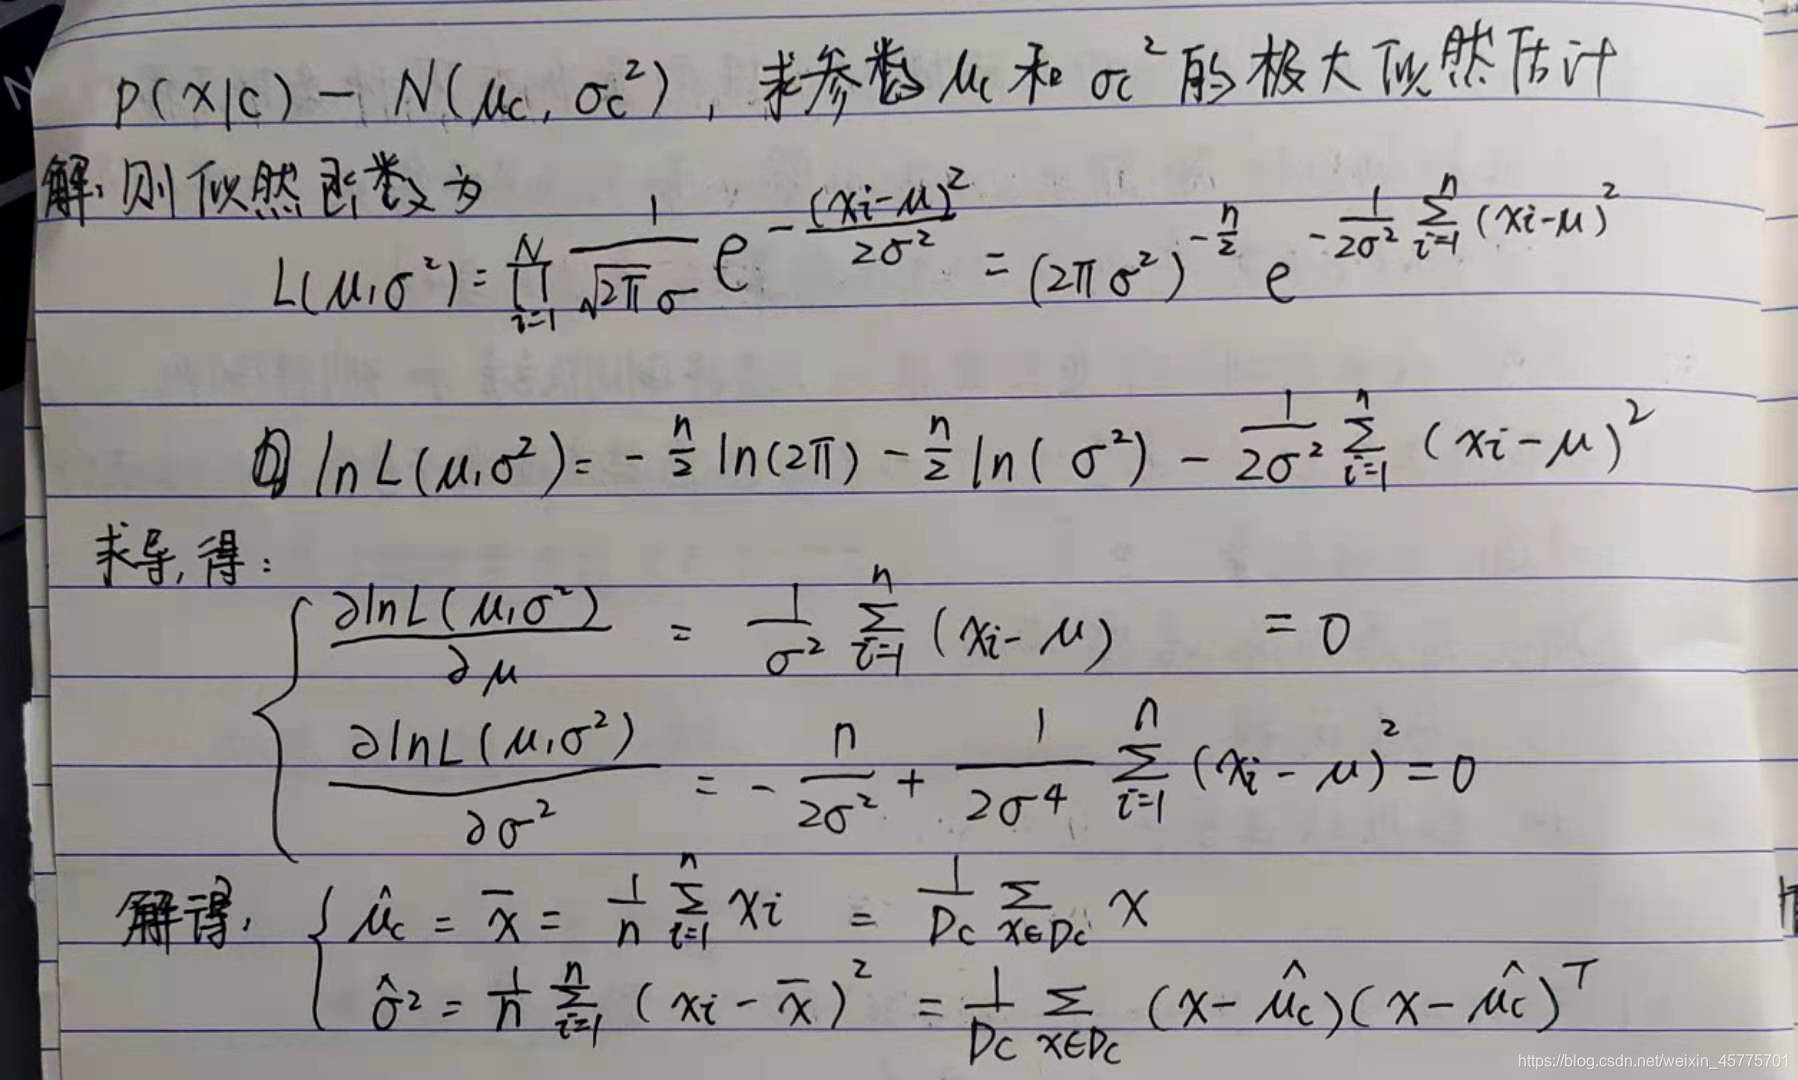 P(x|c) - N(μc, σc²), 求参数μc和σc²的极大似然估计
解: 则似然函数为
L(μ,σ²) = ∏_{i=1}^{N} \frac{1}{\sqrt{2π}σ} e^{-\frac{(xi-μ)²}{2σ²}} = (2πσ²)^{-\frac{n}{2}} e^{-\frac{1}{2σ²} ∑_{i=1}^{n} (xi-μ)²}
ln L(μ,σ²) = -\frac{n}{2} ln(2π) - \frac{n}{2} ln(σ²) - \frac{1}{2σ²} ∑_{i=1}^{n} (xi-μ)²
求导,得:
\frac{∂lnL(μ,σ²)}{∂μ} = \frac{1}{σ²} ∑_{i=1}^{n} (xi-μ) = 0
\frac{∂lnL(μ,σ²)}{∂σ²} = -\frac{n}{2σ²} + \frac{1}{2σ⁴} ∑_{i=1}^{n} (xi-μ)² = 0
解得, { \hat{μ}c = \bar{x} = \frac{1}{n} ∑_{i=1}^{n} xi = \frac{1}{Dc} ∑_{x∈Dc} x
\hat{σ}² = \frac{1}{n} ∑_{i=1}^{n} (xi-\bar{x})² = \frac{1}{Dc} ∑_{x∈Dc} (x-\hat{μc})(x-\hat{μc})^T
https://blog.csdn.net/weixin_45775701